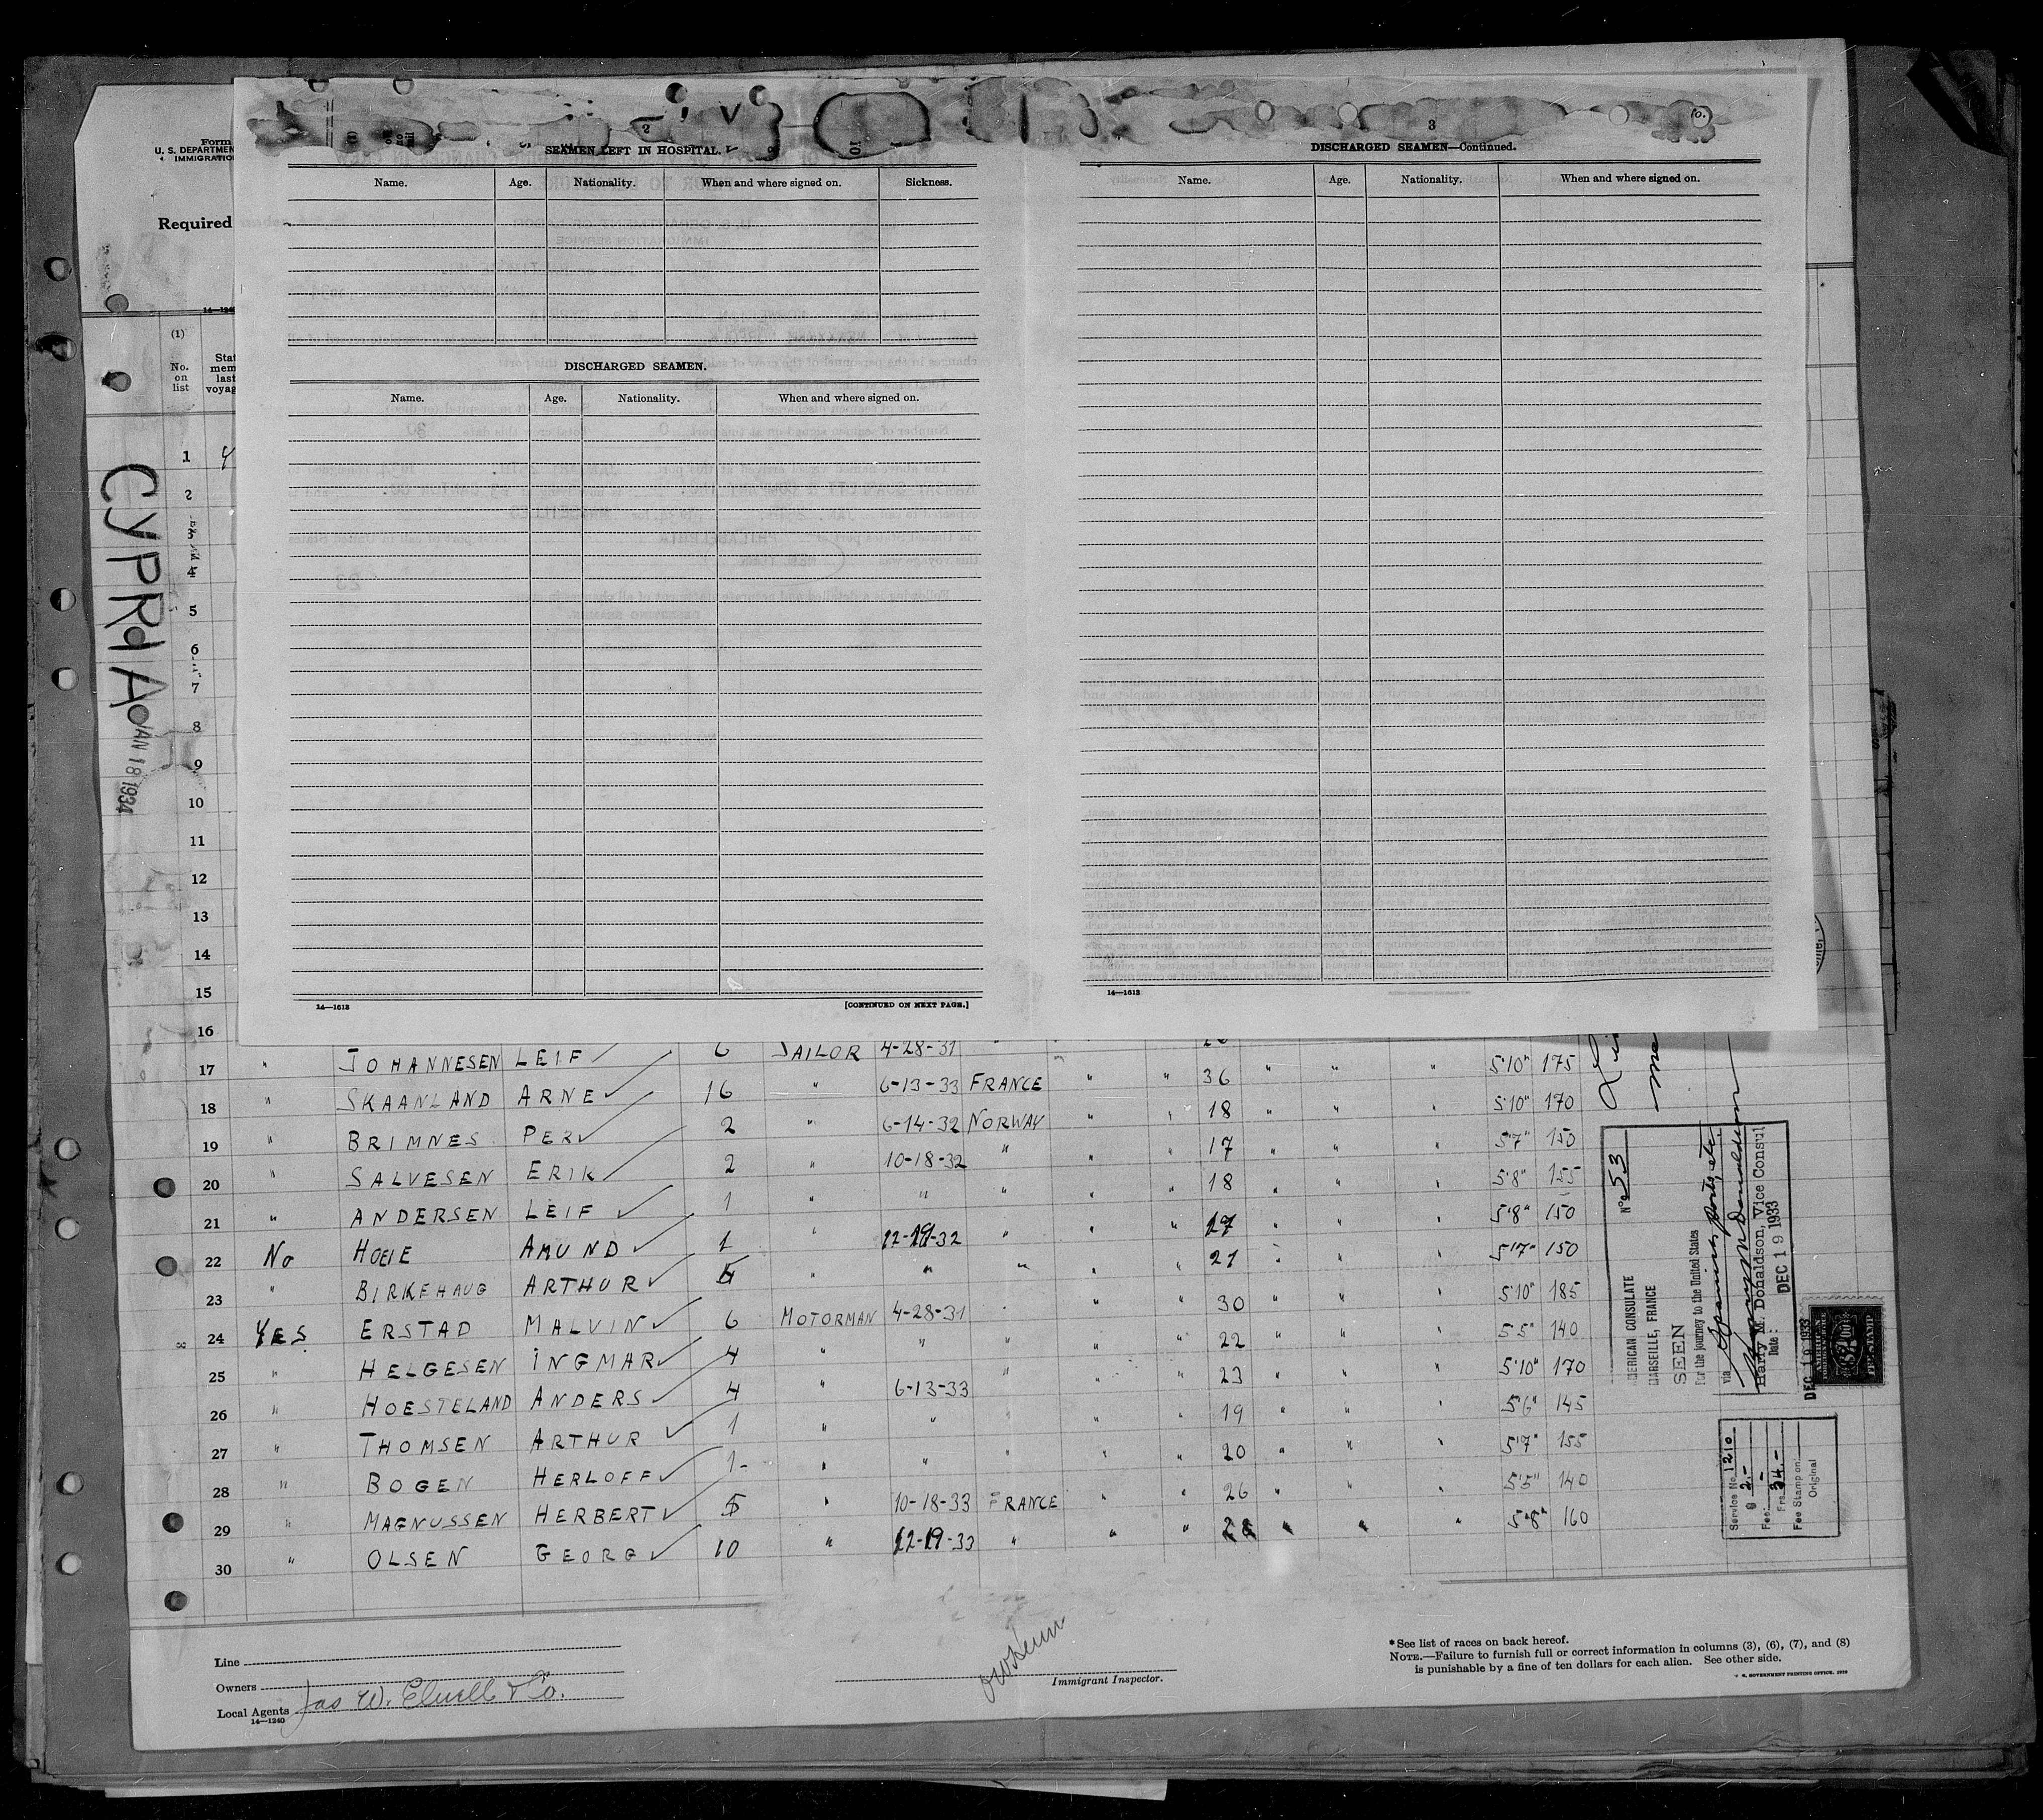 Form
U. S. DEPARTMEN
IMMIGRATIO
Required
14—1240
(1)
No. on list
Stat
mem
last
voyag
CYPRIA
JAN 18 1934
2
SEAMEN LEFT IN HOSPITAL.
Name. Age. Nationality. When and where signed on. Sickness.
DISCHARGED SEAMEN.
Name. Age. Nationality. When and where signed on.
14—1613 [CONTINUED ON NEXT PAGE.]
3
DISCHARGED SEAMEN—Continued.
Name. Age. Nationality. When and where signed on.
14—1613
1
2
3
4
5
6
7
8
9
10
11
12
13
14
15
16
17 " JOHANNESEN LEIF 6 SAILOR 4-28-31 " 5'10" 175
18 " SKAANLAND ARNE 16 " 6-13-33 FRANCE " " 36 " " " 5'10" 170
19 " BRIMNES PER 2 " 6-14-32 NORWAY " " 18 " " " 5'7" 150
20 " SALVESEN ERIK 2 " 10-18-32 " " " 17 " " " 5'8" 155
21 " ANDERSEN LEIF 1 " " " " " 18 " " " 5'8" 150
22 No HOEIE AMUND 1 " 12-19-32 " " " 17 " " " 5'7" 150
23 " BIRKEHAUG ARTHUR " " " " " 21 " " " 5'10" 185
24 YES ERSTAD MALVIN 6 MOTORMAN 4-28-31 " " " 30 " " " 5'5" 140
25 " HELGESEN INGMAR 4 " " " " " 22 " " " 5'10" 170
26 " HOESTELAND ANDERS 4 " 6-13-33 " " " 23 " " " 5'6" 145
27 " THOMSEN ARTHUR 1 " " " " " 19 " " " 5'7" 155
28 " BOGEN HERLOFF 1 " " " " " 20 " " " 5'5" 140
29 " MAGNUSSEN HERBERT 5 " 10-18-33 FRANCE " " 26 " " " 5'8" 160
30 " OLSEN GEORG 10 " 12-19-33 " " " 28 " " "
No 53
AMERICAN CONSULATE
MARSEILLE, FRANCE
SEEN
For the journey to the United States
via Spanish ports, etc.
Harry M Donaldson
Harry M. Donaldson, Vice Consul
Date: DEC 19 1933
DEC 19 1933
AMERICAN
FEE STAMP
Service No 1210
$ 2.-
Fee
Frs. 34.-
Fee Stamp on:
Original
Line
Owners
Local Agents Jas W. Elwell & Co.
14—1240
Immigrant Inspector.
* See list of races on back hereof.
NOTE.—Failure to furnish full or correct information in columns (3), (6), (7), and (8)
is punishable by a fine of ten dollars for each alien. See other side.
U. S. GOVERNMENT PRINTING OFFICE